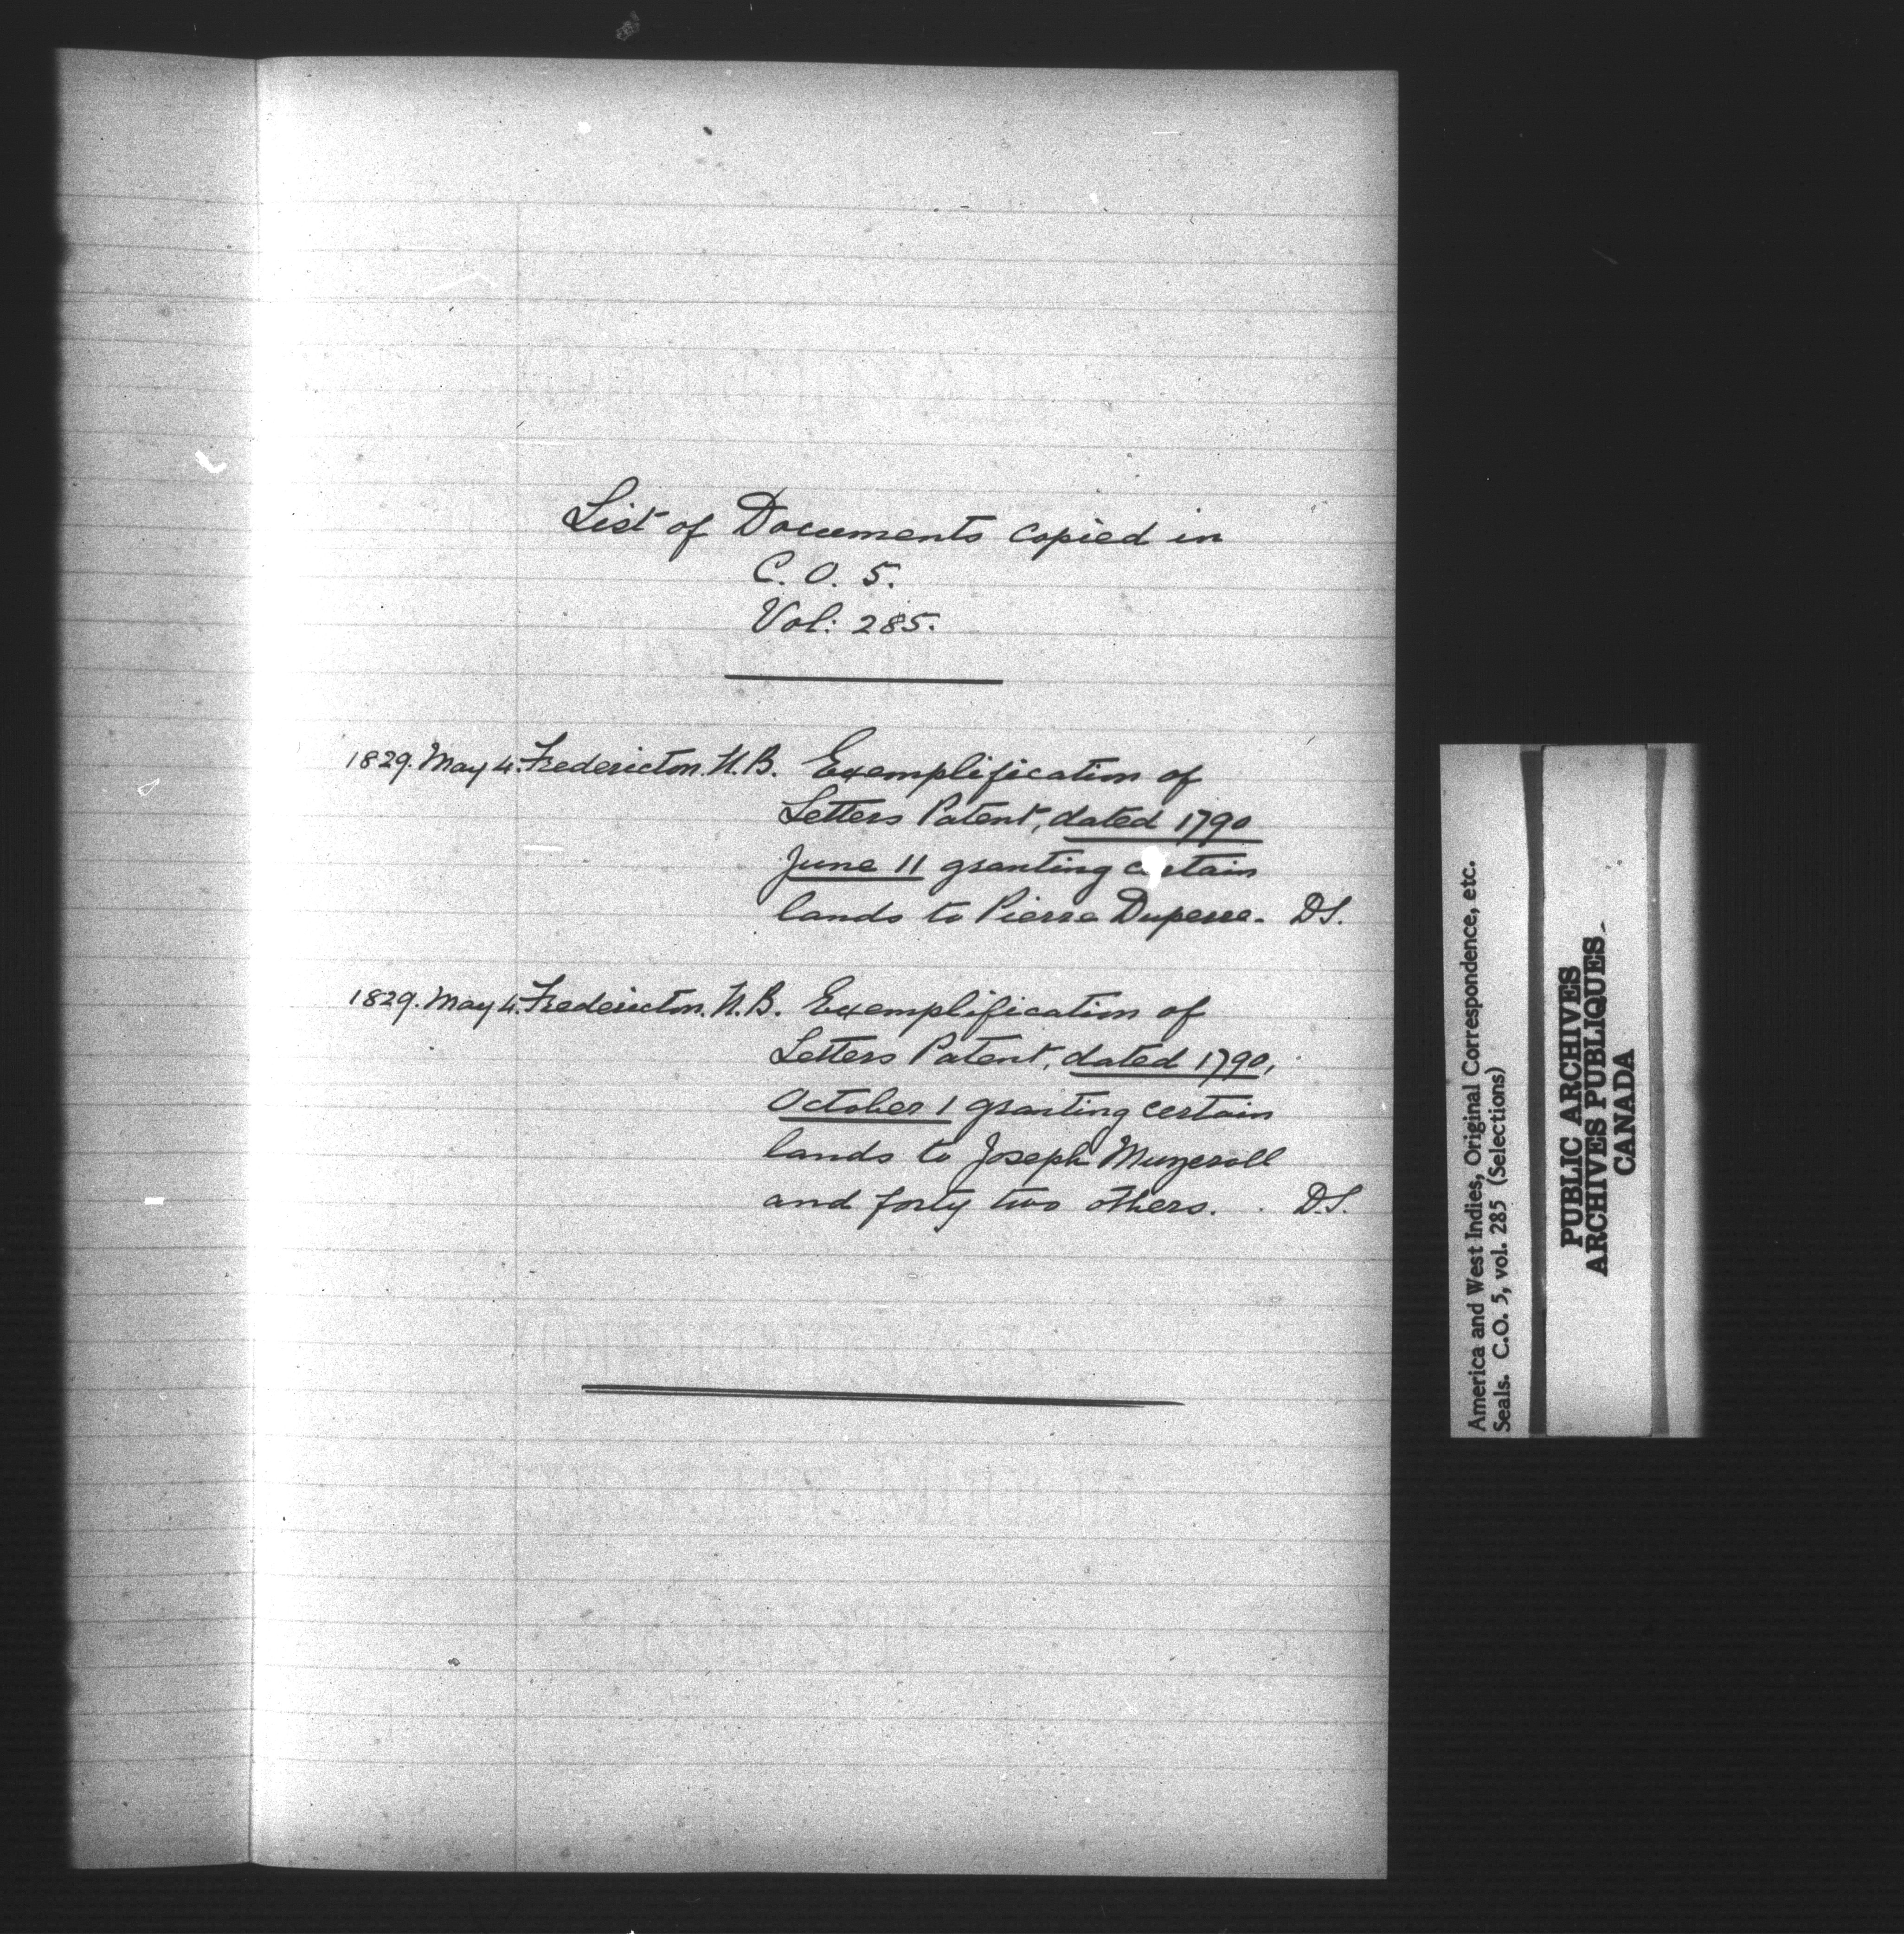 List of Documents copied in
C. O. 5.
Vol: 285.
1829. May 4. Fredericton. N.B. Exemplification of
Letters Patent, dated 1790
June 11 granting certain
lands to Pierre Duperre. DS.
1829. May 4. Fredericton. N.B. Exemplification of
Letters Patent, dated 1790,
October 1 granting certain
lands to Joseph Muzeroll
and forty two others. D.S.
America and West Indies, Original Correspondence, etc.
Seals. C.O. 5, vol. 285 (Selections)
PUBLIC ARCHIVES
ARCHIVES PUBLIQUES
CANADA